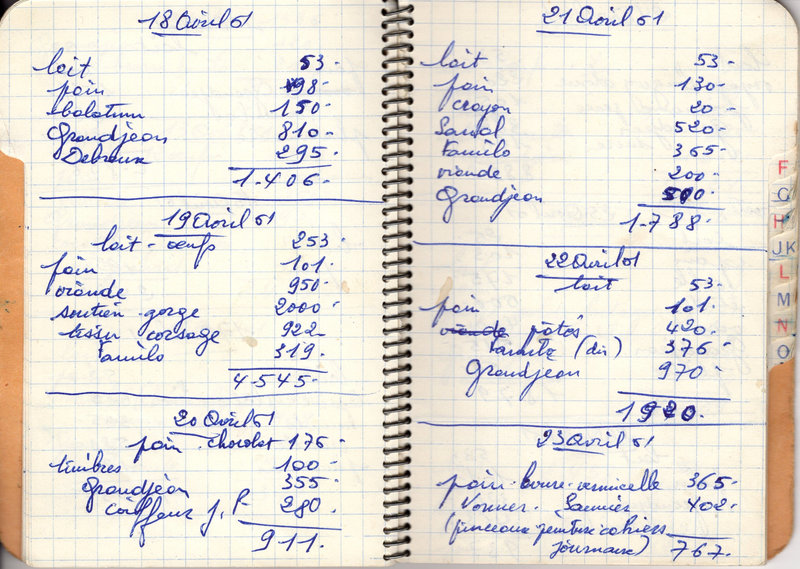 18 Avril 61
lait 53.
pain 98.
balatum 150.
Grandjean 810.
Debraux 295.
1.406.
19 Avril 61
lait - oeufs 253.
pain 101.
viande 950.
soutien gorge 2000.
tissu corsage 922.
Familo 319.
4.545.
20 Avril 61
pain - chocolat 176.
timbres 100.
Grandjean 355.
coiffeur J.P. 280.
911.
21 Avril 61
lait 53.
pain 130.
crayon 20.
520.
Familo 365.
viande 200.
Grandjean 500.
1.788.
22 Avril 61
lait 53.
pain 101.
viande patés 420.
Familo 376.
Grandjean 970.
1920.
23 Avril 61
pain - beurre - vermicelle 365.
402.
(pinceaux peinture cahiers
journaux) 767.
F
G
H
J K
L
M
N
O